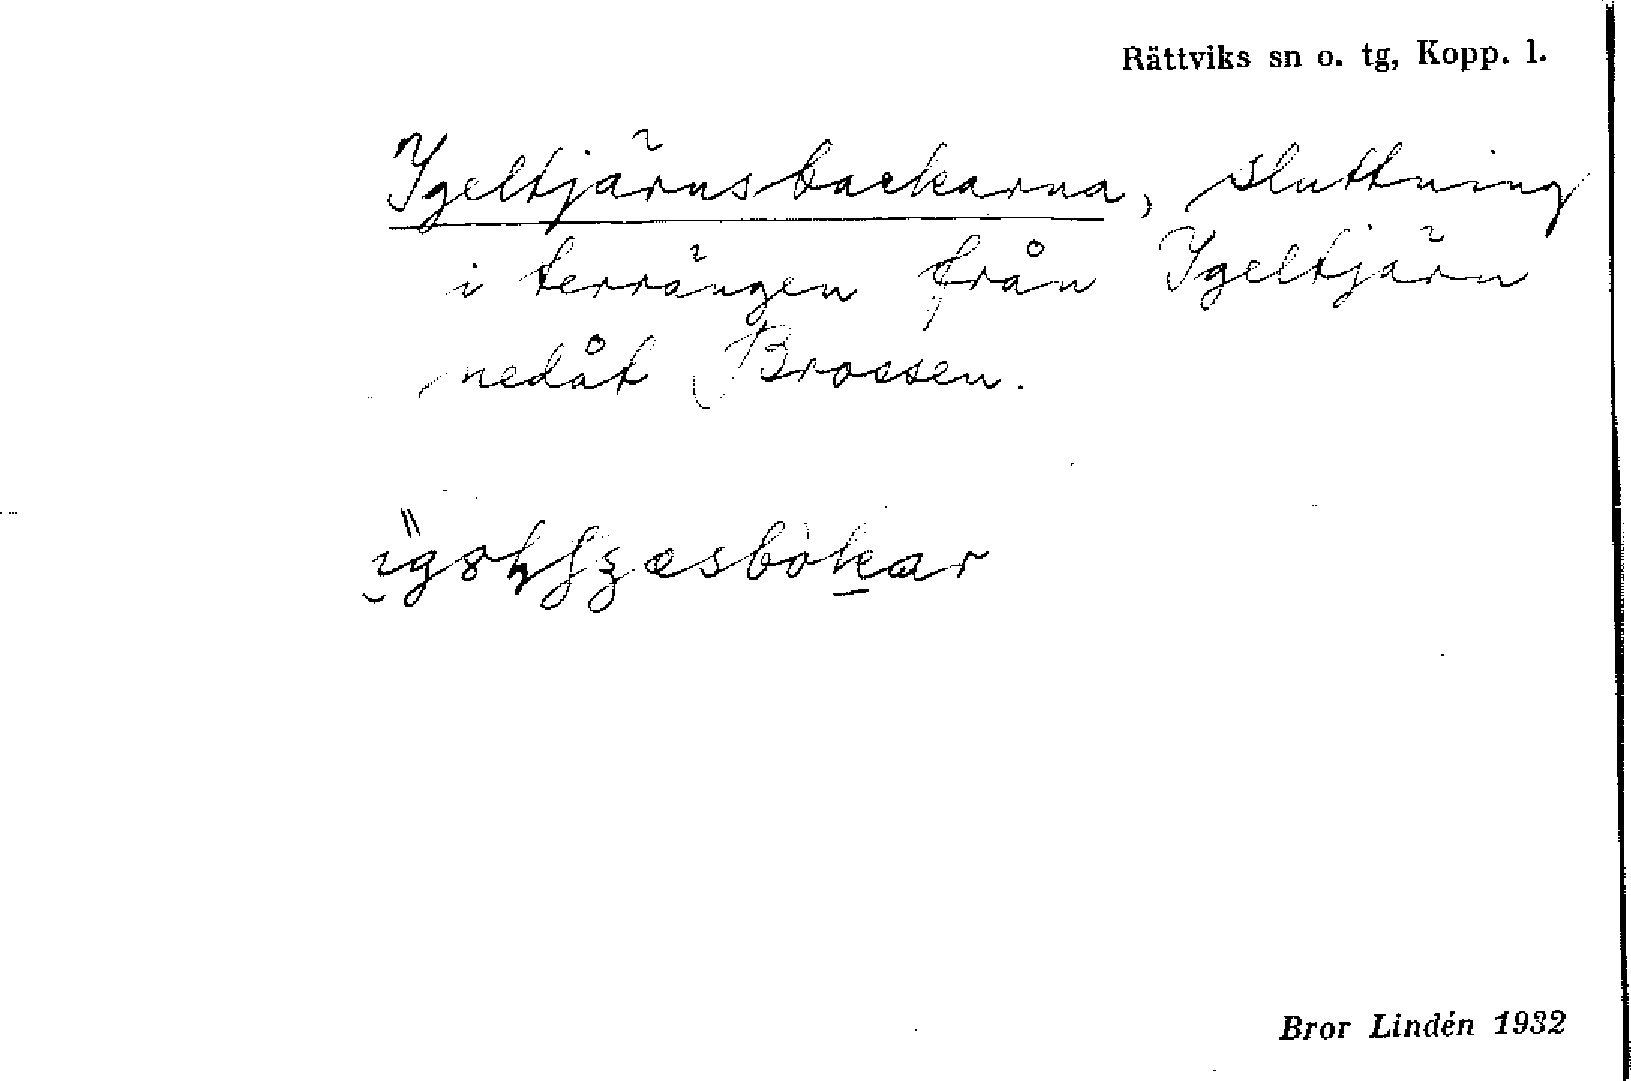 Rättviks sn o. tg, Kopp. l.
Igeltjärnsbackarna, sluttning
i terrängen från Igeltjärn
nedåt Brossen.
Bror Lindén 1932